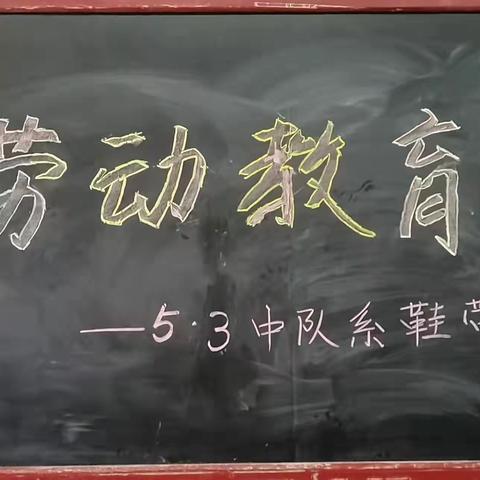 劳动教育
——5·3中队系鞋带